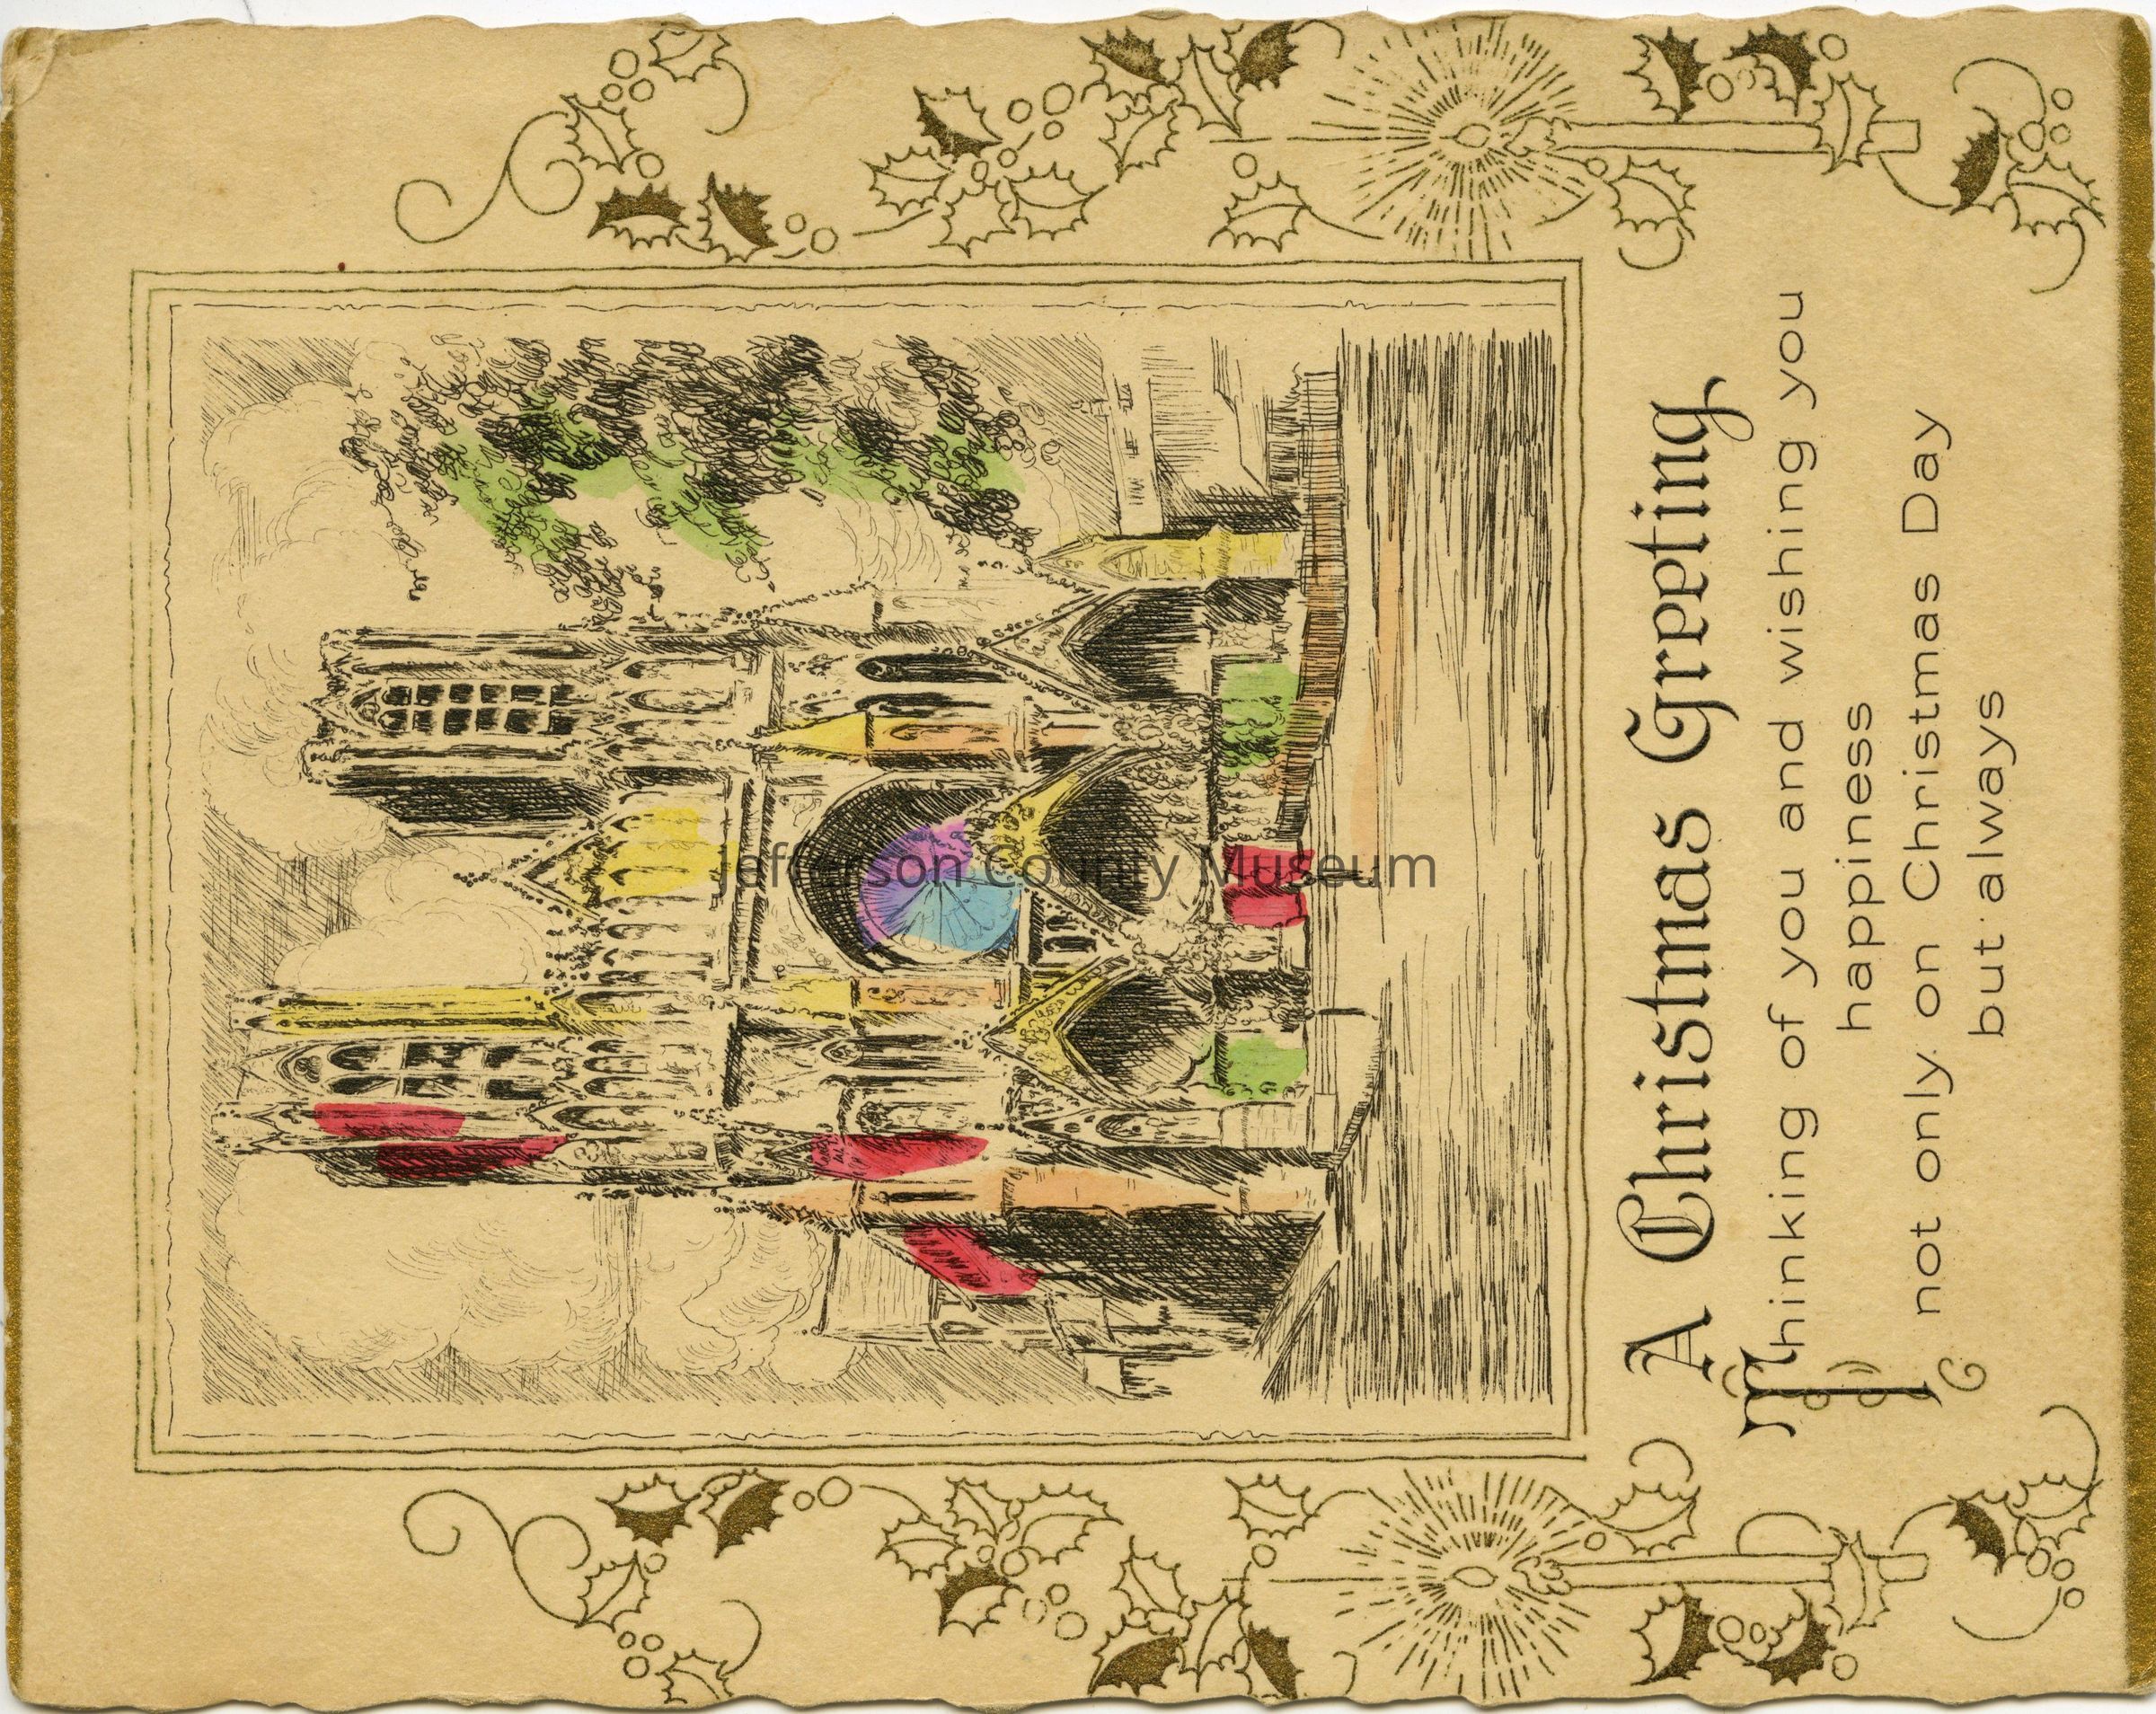 A Christmas Greeting
Thinking of you and wishing you
happiness
not only on Christmas Day
but always
Jefferson County Museum